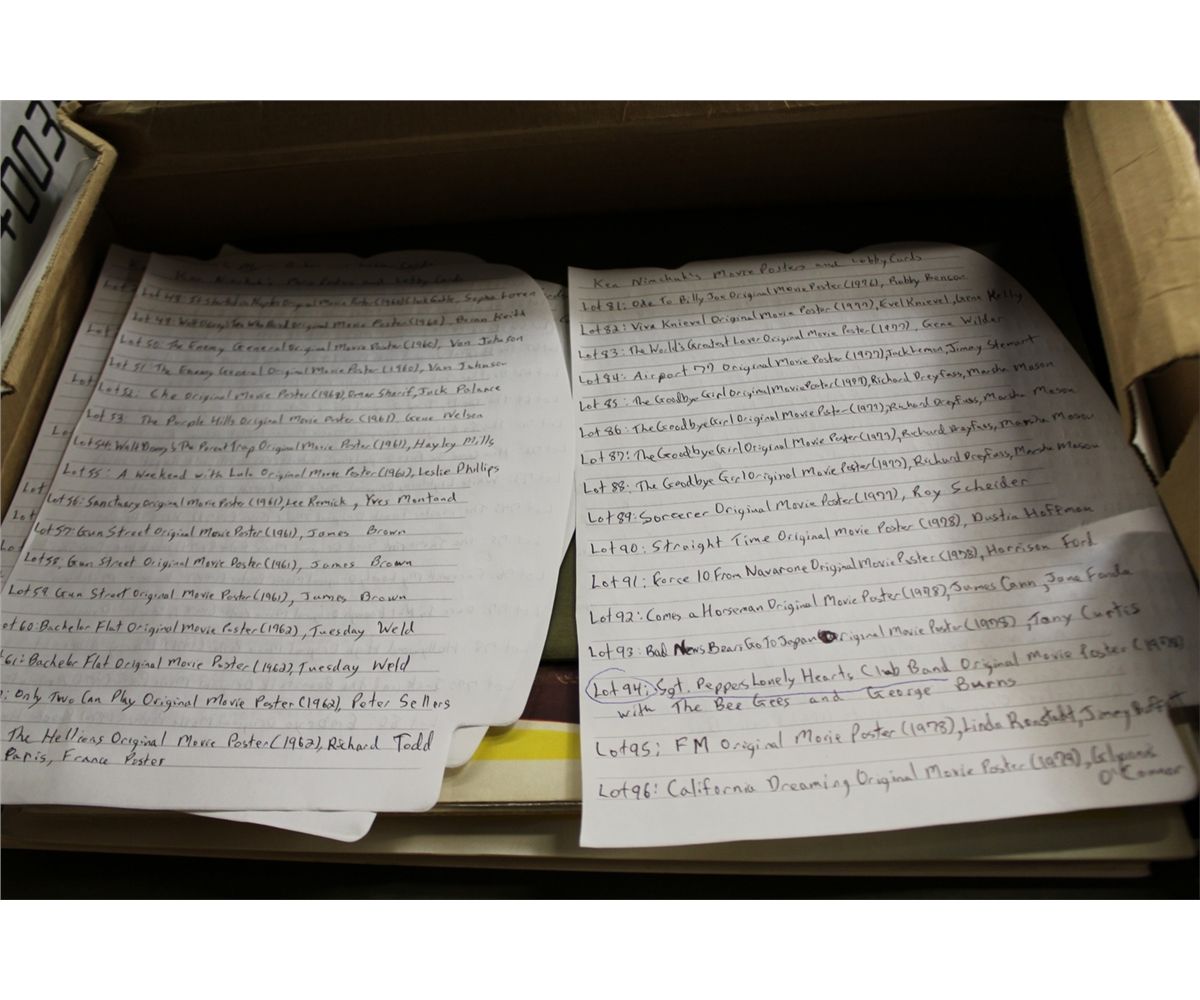 +003
Movie Posters and Lobby Cards
Lot 48: It Started in Naples Original Movie Poster (1960) Clark Gable, Sophia Loren
Lot 49: Walt Disney's Ten Who Dared Original Movie Poster (1960), Brian Keith
Lot 50: The Enemy General Original Movie Poster (1960), Van Johnson
Lot 51: The Enemy General Original Movie Poster (1960), Van Johnson
Lot 52: Che Original Movie Poster (1968), Omar Sharif, Jack Palance
Lot 53: The Purple Hills Original Movie Poster (1961), Gene Nelson
Lot 54: Walt Disney's The Parent Trap Original Movie Poster (1961), Hayley Mills
Lot 55: A Weekend with Lulu Original Movie Poster (1962), Leslie Phillips
Lot 56: Sanctuary Original Movie Poster (1961), Lee Remick, Yves Montand
Lot 57: Gun Street Original Movie Poster (1961), James Brown
Lot 58, Gun Street Original Movie Poster (1961), James Brown
Lot 59 Gun Street Original Movie Poster (1961), James Brown
ot 60: Bachelor Flat Original Movie Poster (1962), Tuesday Weld
61: Bachelor Flat Original Movie Poster (1962), Tuesday Weld
: Only Two Can Play Original Movie Poster (1962), Peter Sellers
The Hellions Original Movie Poster (1962), Richard Todd
Paris, France Poster
Lot
Lot
Lot
Lo
Lot
Lot
Ken Nimchuk's Movie Posters and Lobby Cards
Lot 81: Ode To Billy Joe Original Movie Poster (1976), Robby Benson
Lot 82: Viva Knievel Original Movie Poster (1977), Evel Knievel, Gene Kelly
Lot 83: The World's Greatest Lover Original Movie Poster (1977), Gene Wilder
Lot 84: Airport 77 Original Movie Poster (1977), Jack Lemon, Jimmy Stewart
Lot 85: The Goodbye Girl Original Movie Poster (1977), Richard Dreyfass, Marsha Mason
Lot 86: The Goodbye Girl Original Movie Poster (1977), Richard Dreyfuss, Marsha Mason
Lot 87: The Goodbye Girl Original Movie Poster (1977), Richard Dreyfuss, Marsha Mason
Lot 88: The Goodbye Girl Original Movie Poster (1977), Richard Dreyfuss, Marsha Mason
Lot 89: Sorcerer Original Movie Poster (1977), Roy Scheider
Lot 90: Straight Time Original Movie Poster (1978), Dustin Hoffman
Lot 91: Force 10 From Navarone Original Movie Poster (1978), Harrison Ford
Lot 92: Comes a Horseman Original Movie Poster (1978), James Cann, Jane Fonda
Lot 93: Bad News Bears Go To Japan Original Movie Poster (1978), Tony Curtis
Lot 94: Sgt. Peppers Lonely Hearts Club Band Original Movie Poster (1978)
with The Bee Gees and George Burns
Lot 95: FM Original Movie Poster (1978), Linda Ronstadt, Jimmy Buffett
Lot 96: California Dreaming Original Movie Poster (1979), Glynnis
O'Connor